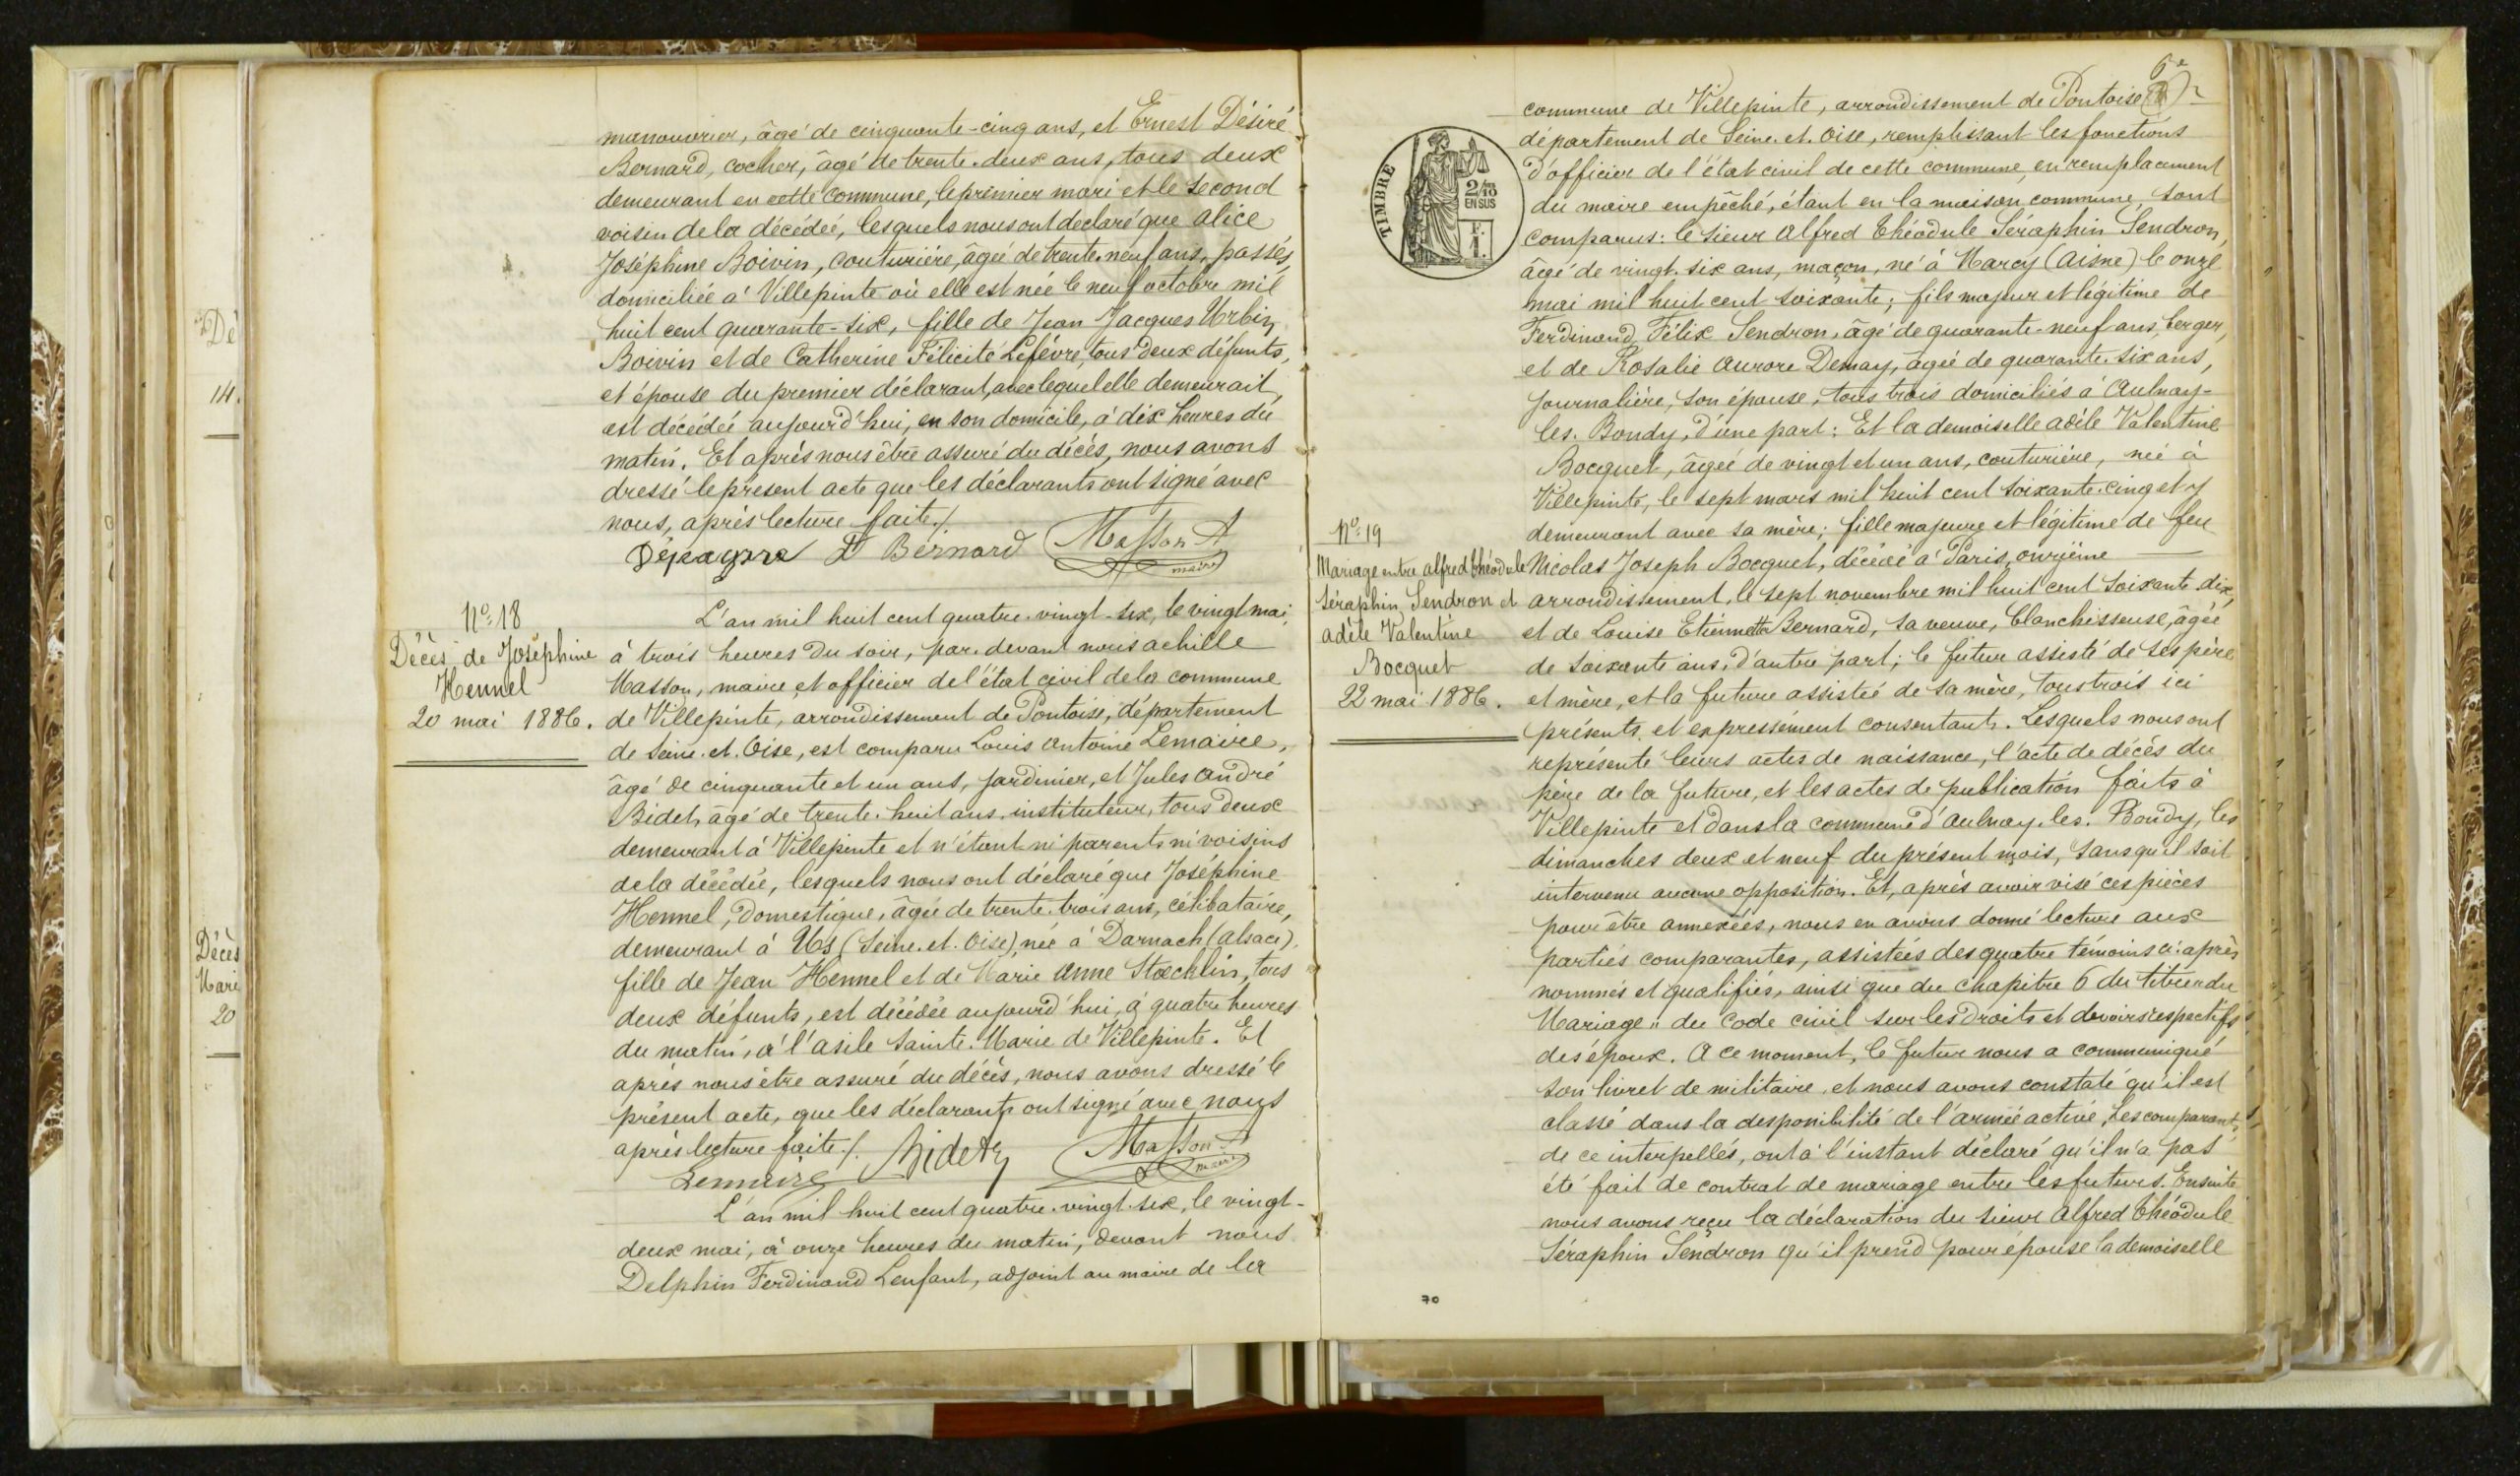 Dè
14.
Décès
Mari
20
manouvrier, âgé de cinquante-cinq ans, et Ernest Désiré
Bernard, cocher, âgé de trente-deux ans, tous deux
demeurant en cette commune, le premier mari et le second
voisin de la décédée, lesquels nous ont declaré que Alice
Joséphine Boivin, couturière, âgée de trente-neuf ans, passés,
domiciliée à Villepinte où elle est née le neuf octobre mil
huit cent quarante-six, fille de Jean Jacques Urbin
Boivin et de Catherine Félicité Lefévre, tous deux défunts,
et épouse du premier déclarant, avec lequel elle demeurait,
est décédée aujourd'hui, en son domicile, à dix heures du
matin. Et après nous être assuré du décès, nous avons
dressé le présent acte que les déclarants ont signé avec
nous, après lecture faite./.
D Bernard Masson A
maire
Nº 18
Décès de Joséphine
Hennel
20 mai 1886.
L'an mil huit cent quatre-vingt-six, le vingt mai,
à trois heures du soir, par-devant nous Achille
Masson, maire et officier de l'état civil de la commune
de Villepinte, arrondissement de Pontoise, département
de Seine-et-Oise, est comparu Louis Antoine Lemaire,
âgé de cinquante et un ans, jardinier, et Jules André
Bidet, âgé de trente-huit ans, instituteur, tous deux
demeurant à Villepinte et n'étant ni parents ni voisins
de la décédée, lesquels nous ont déclaré que Joséphine
Hennel, domestique, âgée de trente-trois ans, célibataire,
demeurant à Us (Seine-et-Oise), née à Darnach (Alsace),
fille de Jean Hennel et de Marie Anne Stœcklin, tous
deux défunts, est décédée aujourd'hui, à quatre heures
du matin, à l'asile Sainte-Marie de Villepinte. Et
après nous être assuré du décès, nous avons dressé le
présent acte, que les déclarants ont signé avec nous
après lecture faite./. Bidet Masson A
Lemaire maire
L'an mil huit cent quatre-vingt-six, le vingt-
deux mai, à onze heures du matin, devant nous
Delphin Ferdinand Lenfant, adjoint au maire de la
6e
commune de Villepinte, arrondissement de Pontoise
département de Seine-et-Oise, remplissant les fonctions
d'officier de l'état civil de cette commune, en remplacement
du maire empêché, étant en la maison commune, sont
comparus: le sieur Alfred Théodule Séraphin Sendron,
âgé de vingt-six ans, maçon, né à Marcy (Aisne) le onze
mai mil huit cent soixante; fils majeur et légitime de
Ferdinand Félix Sendron, âgé de quarante-neuf ans, berger,
et de Rosalie Aurore Demay, âgée de quarante-six ans,
journalière, son épouse, tous trois domiciliés à Aulnay-
les-Bondy, d'une part: Et la demoiselle Adèle Valentine
Bocquet, âgée de vingt et un ans, couturière, née à
Villepinte, le sept mars mil huit cent soixante-cinq et y
demeurant avec sa mère; fille majeure et légitime de feu
Nicolas Joseph Bocquet, décédé à Paris, onzième
arrondissement, le sept novembre mil huit cent soixante-dix,
et de Louise Etiennette Bernard, sa veuve, blanchisseuse, âgée
de soixante ans, d'autre part; le futur assisté de ses père
et mère, et la future assistée de sa mère, tous trois ici
présents et expressément consentants. Lesquels nous ont
représenté leurs actes de naissance, l'acte de décès du
père de la future, et les actes de publication faits à
Villepinte et dans la commune d'Aulnay-les-Bondy, les
dimanches deux et neuf du présent mois, sans qu'il soit
intervenu aucune opposition. Et, après avoir visé ces pièces
pour être annexées, nous en avons donné lecture aux
parties comparantes, assistées des quatre témoins ci-après
nommés et qualifiés, ainsi que du chapitre 6 du titre "du
Mariage" du Code civil sur les droits et devoirs respectifs
des époux. A ce moment, le futur nous a communiqué
son livret de militaire, et nous avons constaté qu'il est
classé dans la desponibilité de l'armée active, Les comparants,
de ce interpellés, ont à l'instant déclaré qu'il n'a pas
été fait de contrat de mariage entre les futurs. Ensuite
nous avons reçu la déclaration du sieur Alfred Théodule
Séraphin Sendron qu'il prend pour épouse la demoiselle
TIMBRE
2/10
EN SUS
F.
1.
Nº 19
Mariage entre Alfred Théodule
Séraphin Sendron et
Adèle Valentine
Bocquet
22 mai 1886.
70